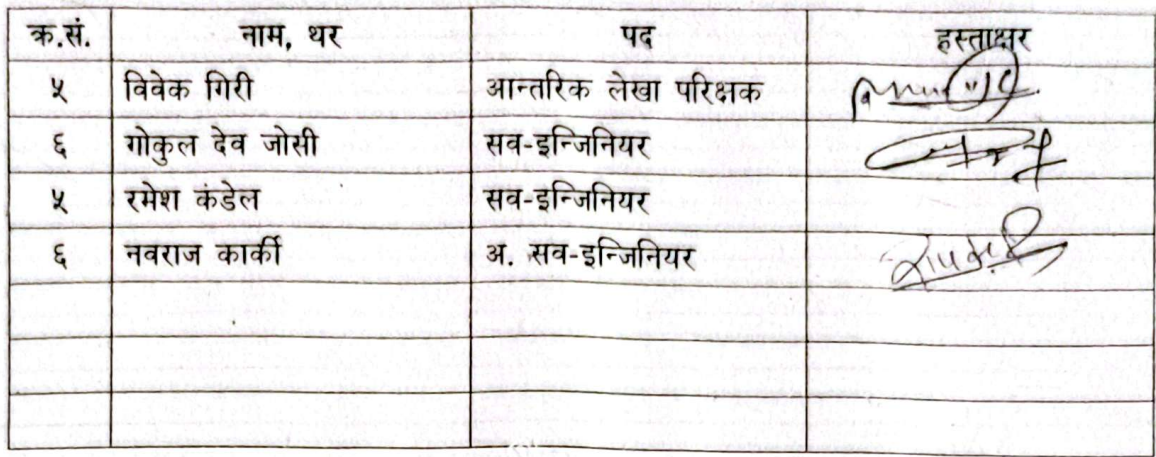 क्र.सं. नाम, थर पद हस्ताक्षर
५ विवेक गिरी आन्तरिक लेखा परिक्षक
६ गोकुल देव जोसी सव-इन्जिनियर
५ रमेश कंडेल सव-इन्जिनियर
६ नवराज कार्की अ. सव-इन्जिनियर